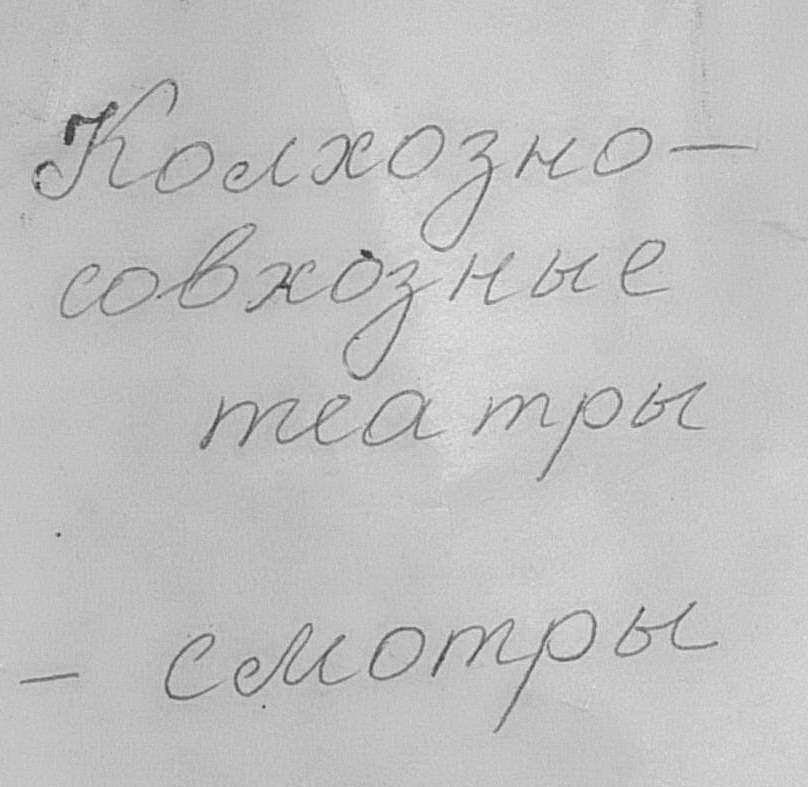 Колхозно-
совхозные
театры
- смотры